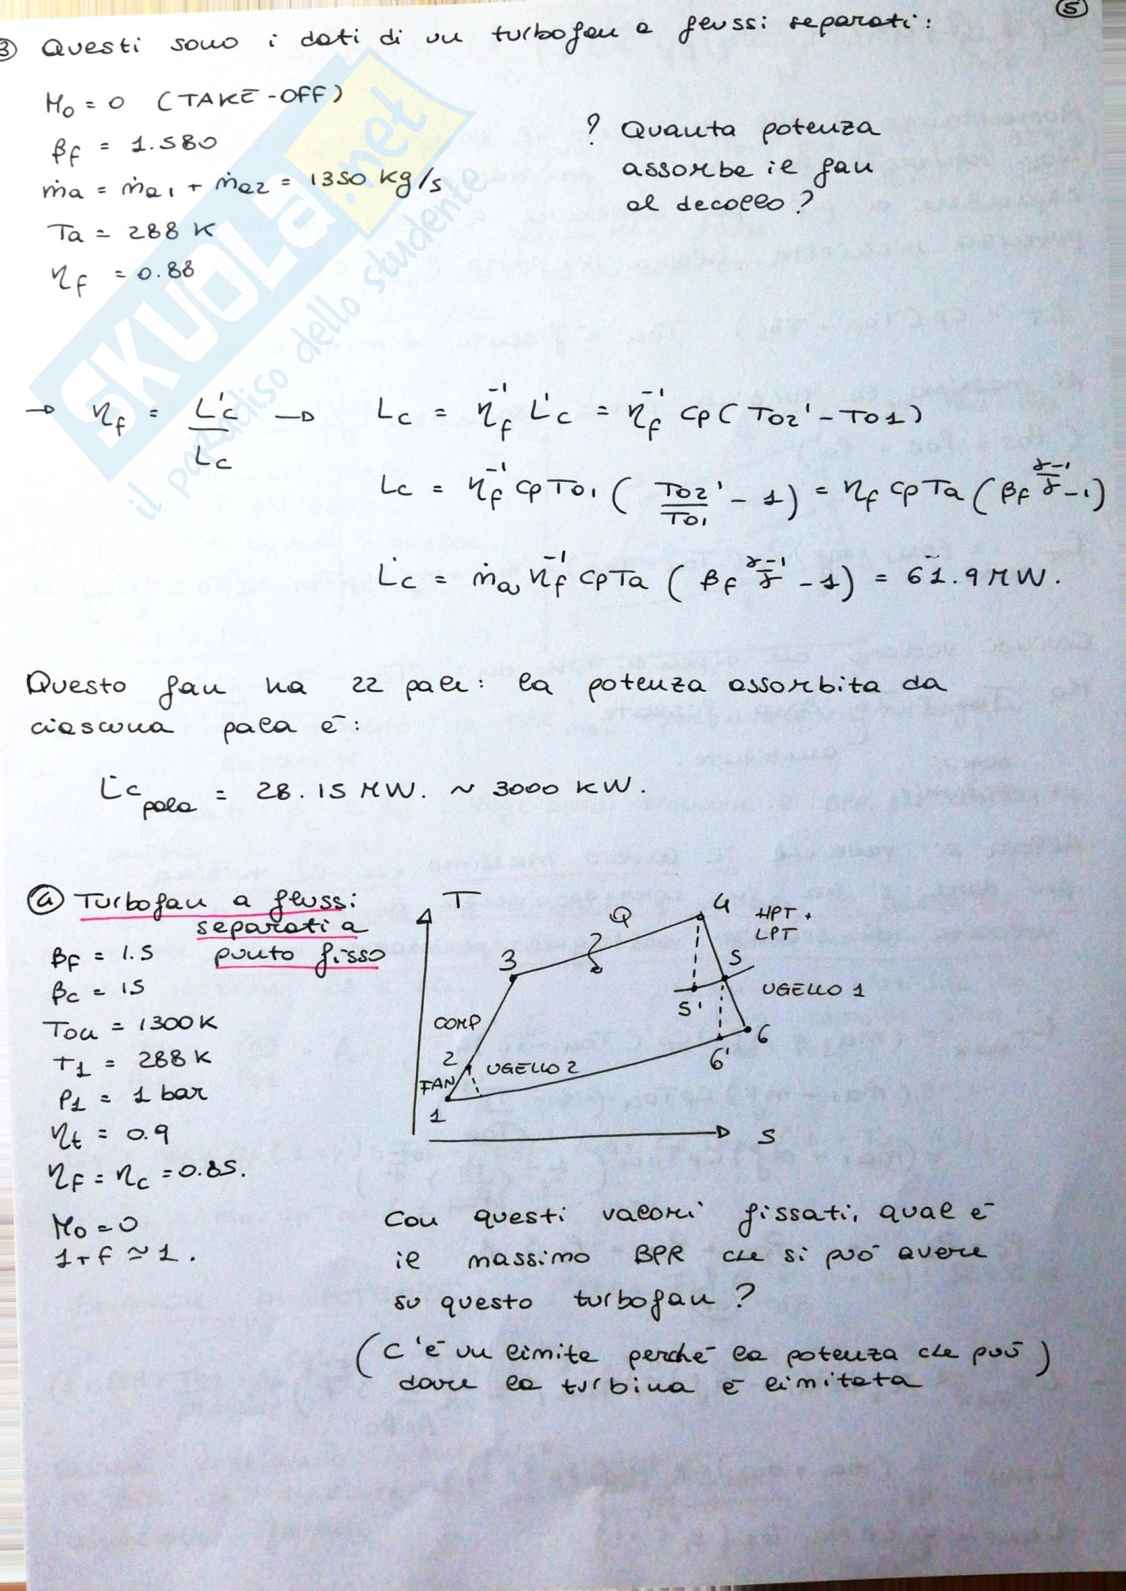 5
3 Questi sono i dati di un turbofan a flussi separati:
M₀ = 0 (TAKE-OFF)
βf = 1.580
ṁa = ṁa1 + ṁa2 = 1350 kg/s
Ta = 288 K
ηf = 0.88
? Quanta potenza
assorbe il fan
al decollo?
→ ηf = L'c / Lc → Lc = ηf⁻¹ L'c = ηf⁻¹ cp (To2' - To1)
Lc = ηf⁻¹ cp To1 ( To2'/To1 - 1) = ηf cp Ta ( βf^(γ-1/γ) - 1)
L̇c = ṁa ηf⁻¹ cp Ta ( βf^(γ-1/γ) - 1) = 61.9 MW.
Questo fan ha 22 pale: la potenza assorbita da
ciascuna pala è:
L̇c pala = 28.15 MW. ~ 3000 KW.
4 Turbofan a flussi
separati a
punto fisso
βF = 1.5
βc = 15
To4 = 1300 K
T1 = 288 K
P1 = 1 bar
ηt = 0.9
ηF = ηc = 0.85.
M₀ = 0
1+f ≃ 1.
T
Q
4
HPT +
LPT
3
5
UGELLO 1
5'
COMP
6
6'
2
UGELLO 2
FAN
1
S
Con questi valori fissati, qual è
il massimo BPR che si può avere
su questo turbofan?
(C'è un limite perché la potenza che può)
dare la turbina è limitata
SKUOLA.net
il paradiso dello studente